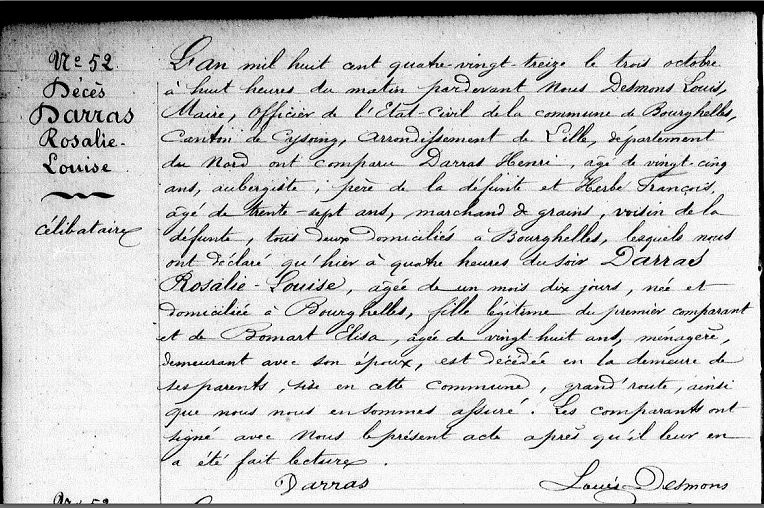 Nº 52.
Décès
Darras
Rosalie-
Louise
célibataire
L'an mil huit cent quatre-vingt-treize le trois octobre
à huit heures du matin pardevant Nous Desmons Louis,
Maire, Officier de l'Etat-Civil de la commune de Bourghelles,
Canton de Cysoing, Arrondissement de Lille, département
du Nord ont comparu Darras Henri, âgé de vingt-cinq
ans, aubergiste, père de la défunte et Herbé François,
âgé de trente-sept ans, marchand de grains, voisin de la
défunte, tous deux domiciliés à Bourghelles, lesquels nous
ont déclaré qu'hier à quatre heures du soir Darras
Rosalie-Louise, âgée de un mois dix jours, née et
domiciliée à Bourghelles, fille légitime du premier comparant
et de Bomart Elisa, âgée de vingt-huit ans, ménagère,
demeurant avec son époux, est décédée en la demeure de
ses parents, sise en cette commune, grand'route, ainsi
que nous nous en sommes assuré. Les comparants ont
signé avec Nous le présent acte après qu'il leur en
a été fait lecture.
Darras Louis Desmons